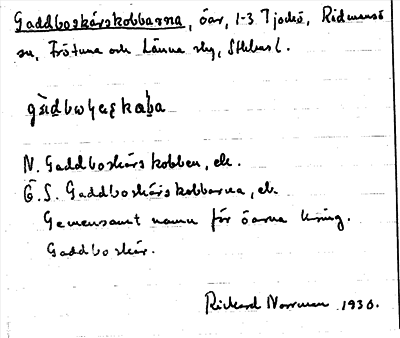 Gaddboskärskobbarna, öar, 1-3 Tjockö, Rådmansö
sn, Frötuna och Länna skg, Sthlms l.
N. Gaddboskärskobben, ek.
Ö. S. Gaddboskärskobbarna, ek.
Gemensamt namn för öarna kring.
Gaddboskär.
Rickard Norrman 1930.